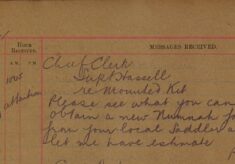 HOUR
RECEIVED.
MESSAGES RECEIVED.
A.M. P.M.
Chief Clerk
Supt Hassell
re Mounted Kit
Please see what you can
obtain a new Numnah for
from your local Saddler &
let me have estimate